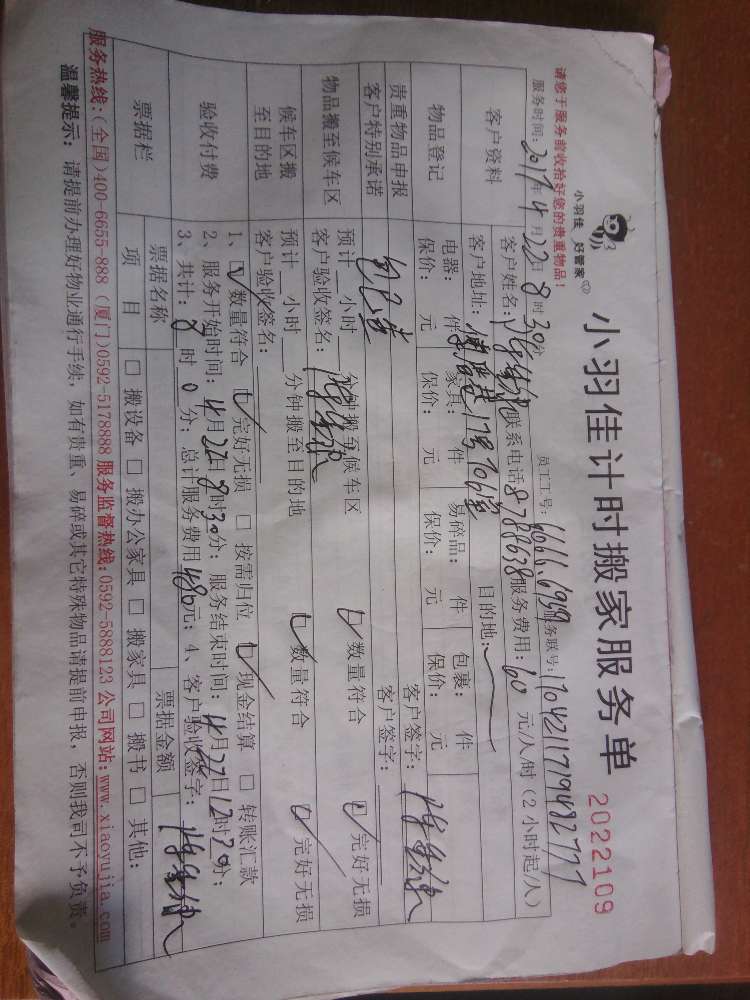 小羽佳 好管家
小羽佳计时搬家服务单 2022109
请您于服务前收拾好您的贵重物品!
员工工号: 6666.6999 服务联号: 17042117194827777
服务时间: 2017年4月22日8时30分
客户资料 客户姓名: 联系电话 8788638 服务费用: 60 元/人/时 (2小时起/人)
客户地址: 17号704室 目的地:
物品登记 电器: 件 家具: 件 易碎品: 件 包裹: 件
保价: 元 保价: 元 保价: 元 保价: 元
贵重物品申报 客户签字:
客户特别承诺 自己出 客户签字:
物品搬至候车区 预计 小时 分钟搬至候车区 数量符合 完好无损
客户验收签名:
候车区搬至目的地 预计 小时 分钟搬至目的地 数量符合 完好无损
客户验收签名:
验收付费 1、数量符合 完好无损 □ 按需归位 现金结算 □ 转账汇款
2、服务开始时间: 4月22日8时30分; 服务结束时间: 4月22日12时20分;
3、共计: 8时0分; 总计服务费用 480元; 4、客户验收签字:
票据栏 票据名称 票据金额
项目 □ 搬设备 □ 搬办公家具 □ 搬家具 □ 搬书 □ 其他:
服务热线: (全国)400-6655-888 (厦门)0592-5178888 服务监督热线: 0592-5888123 公司网站: www.xiaoyujia.com
温馨提示: 请提前办理好物业通行手续, 如有贵重、易碎或其它特殊物品请提前申报, 否则我司不予负责。